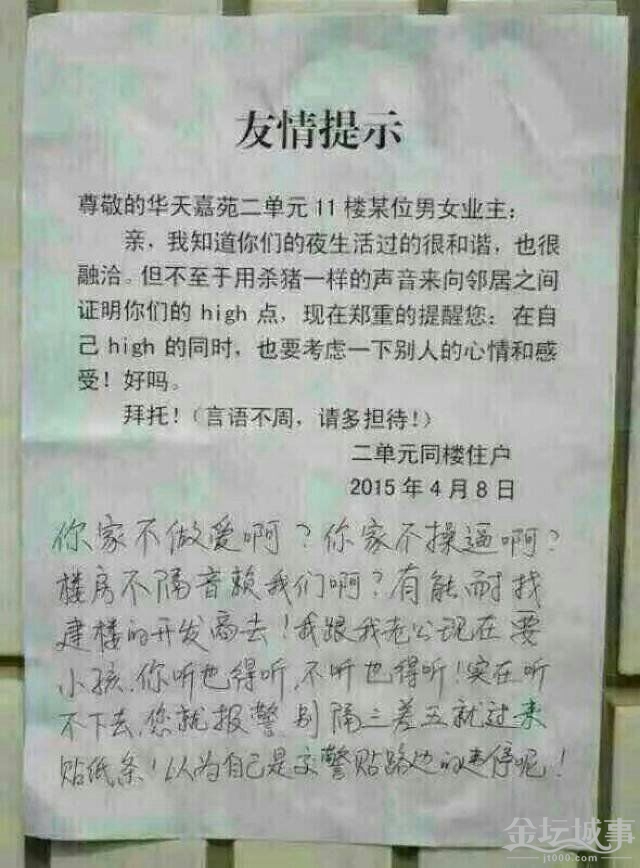 友情提示
尊敬的华天嘉苑二单元11楼某位男女业主：
亲，我知道你们的夜生活过的很和谐，也很
融洽。但不至于用杀猪一样的声音来向邻居之间
证明你们的 high 点，现在郑重的提醒您：在自
己 high 的同时，也要考虑一下别人的心情和感
受！好吗。
拜托！（言语不周，请多担待！）
二单元同楼住户
2015 年 4 月 8 日
你家不做爱啊？你家不操逼啊？
楼房不隔音赖我们啊？有能耐找
建楼的开发商去！我跟我老公现在要
小孩，你听也得听，不听也得听！实在听
不下去，您就报警，别隔三差五就过来
贴纸条！以为自己是交警贴路边的违停呢！
金坛城事
jt000.com